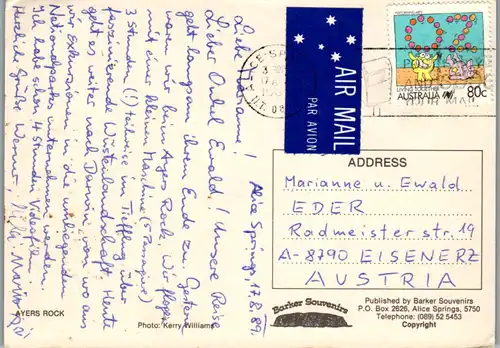 Alice Springs, 17.8.89.
Liebe Mariann!
Lieber Onkel Ewald! Unsere Reise
geht langsam ihrem Ende zu. Gestern
waren wir beim Ayers Rock. Wir flogen
mit einer kleinen Maschine (5 Passagiere)
3 Stunden (!) teilweise im Tiefflug über
faszinierende Wüstenlandschaft. Heute
geht es weiter nach Darwin, von wo aus
wir Exkursionen in die umliegenden
Nationalparks unternehmen werden.
Ich habe schon 4 Stunden Videofilm.
Herzliche Grüße Werner,
AYERS ROCK
Photo: Kerry Williams
AIR MAIL
PAR AVION
LIVING TOGETHER
AUSTRALIA 80c
ADDRESS
Marianne u. Ewald
EDER
Radmeisterstr. 19
A-8790 EISENERZ
AUSTRIA
Barker Souvenirs
Published by Barker Souvenirs
P.O. Box 2626, Alice Springs, 5750
Telephone: (089) 52 5453
Copyright